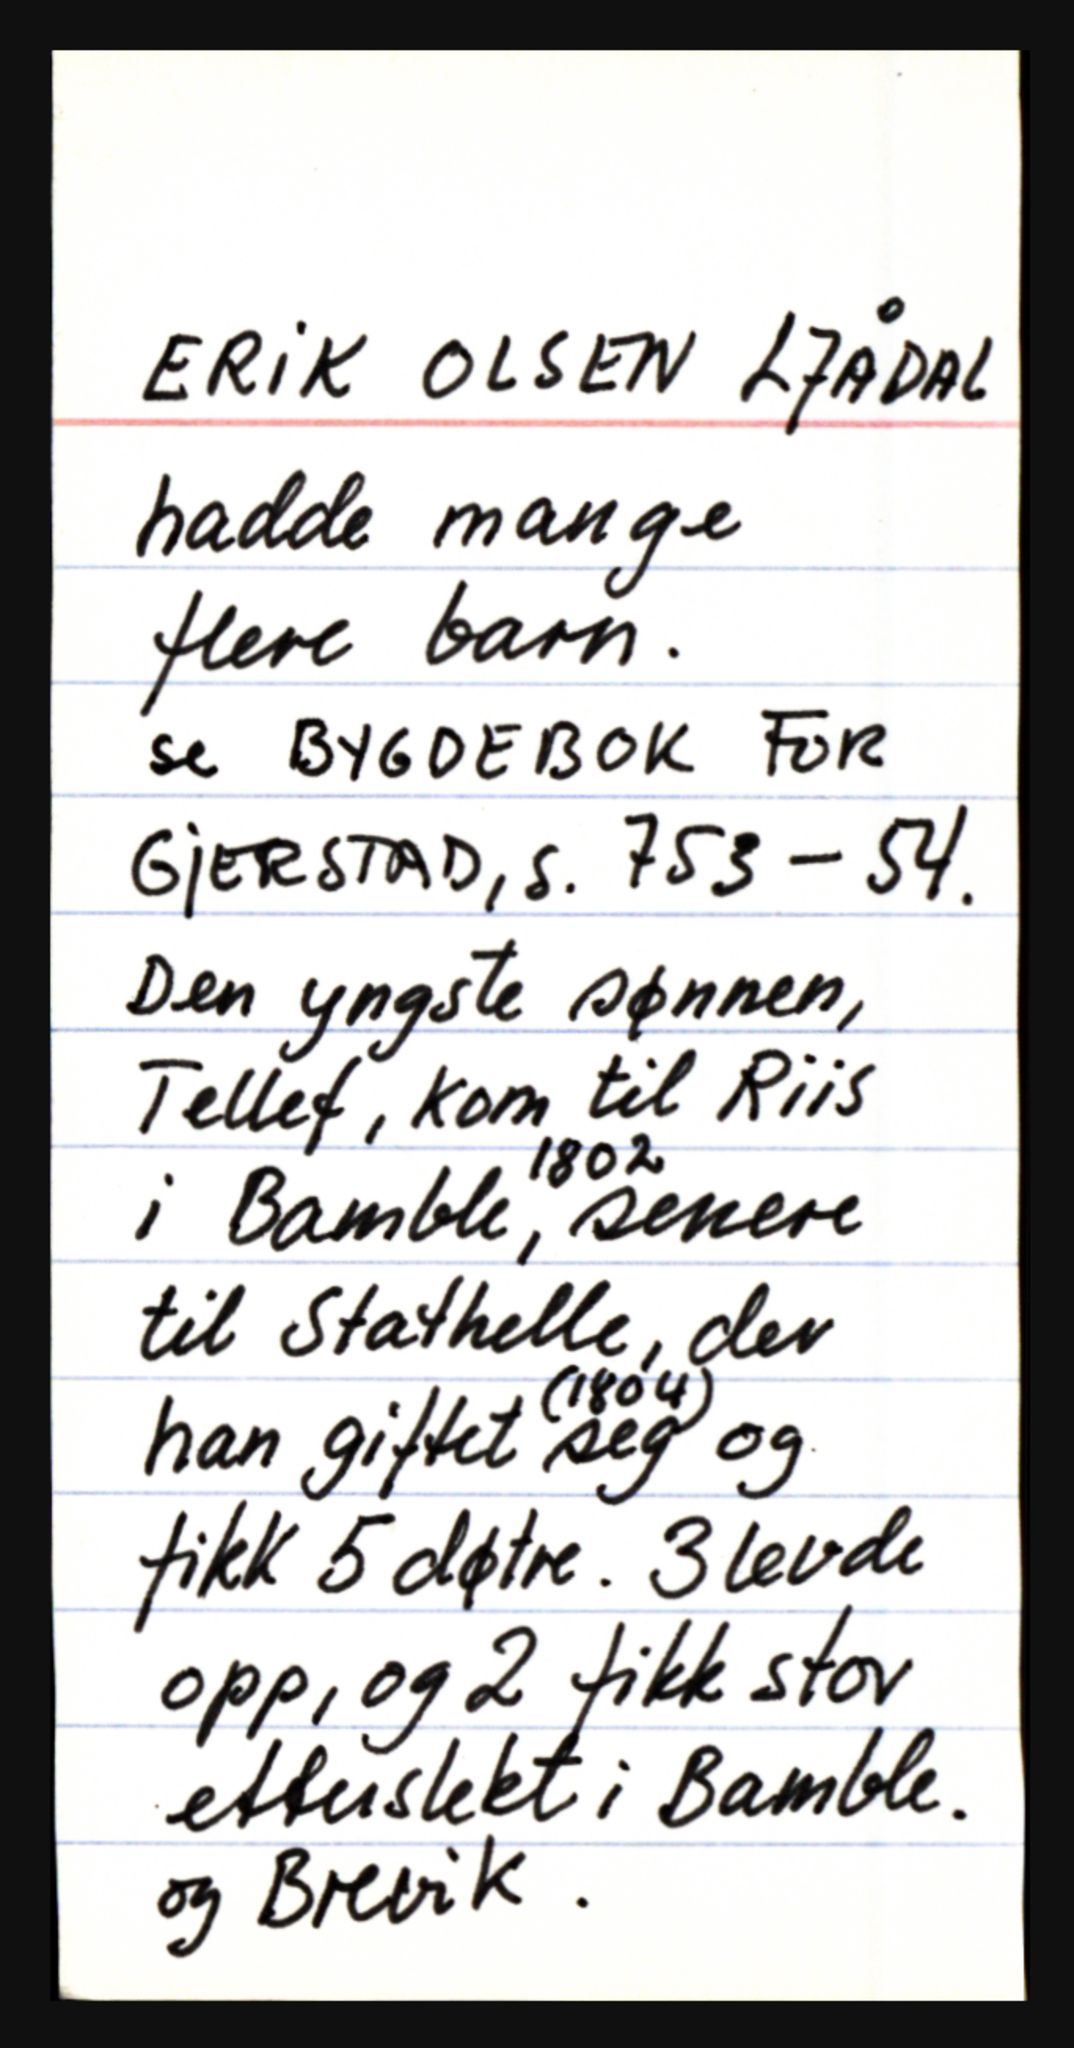 ERIK OLSEN LJÅDAL
hadde mange
flere barn.
se BYGDEBOK FOR
GJERSTAD, s. 753 - 54.
Den yngste sønnen,
Tellef, kom til Riis
1802
i Bamble, senere
til Stathelle, der
(1804)
han giftet seg og
fikk 5 døtre. 3 levde
opp, og 2 fikk stor
etterslekt i Bamble.
og Brevik.